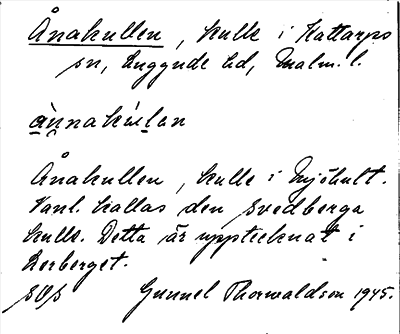 Ånakullen, kulle i Kattarps
sn, Luggude hd, Malm. l.
ànnakúlan
Ånakullen, kulle i Mjöhult.
Vanl. kallas den Svedberga
kulle. Detta är upptecknat i
Lerberget.
Gunnel Thorwaldson 1945.